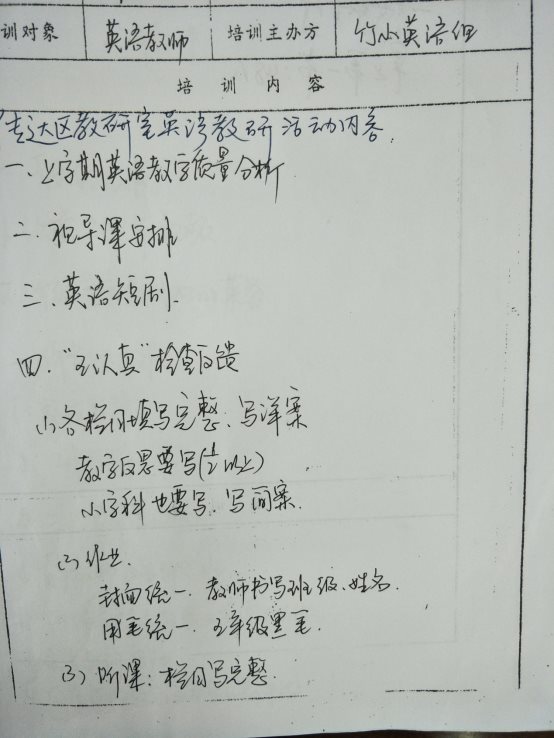 训对象 英语教师 培训主办方 竹小英语组
培训内容
传达区教研室英语教研活动内容.
一、上学期英语教学质量分析
二、视导课安排
三、英语短剧.
四、“五认真”检查反馈
(1) 各栏目填写完整、写详案
教学反思要写(1/2以上)
小学科也要写. 写简案.
(2) 作业.
封面统一. 教师书写班级、姓名.
用笔统一. 五年级黑笔.
(3) 听课: 栏目写完整.